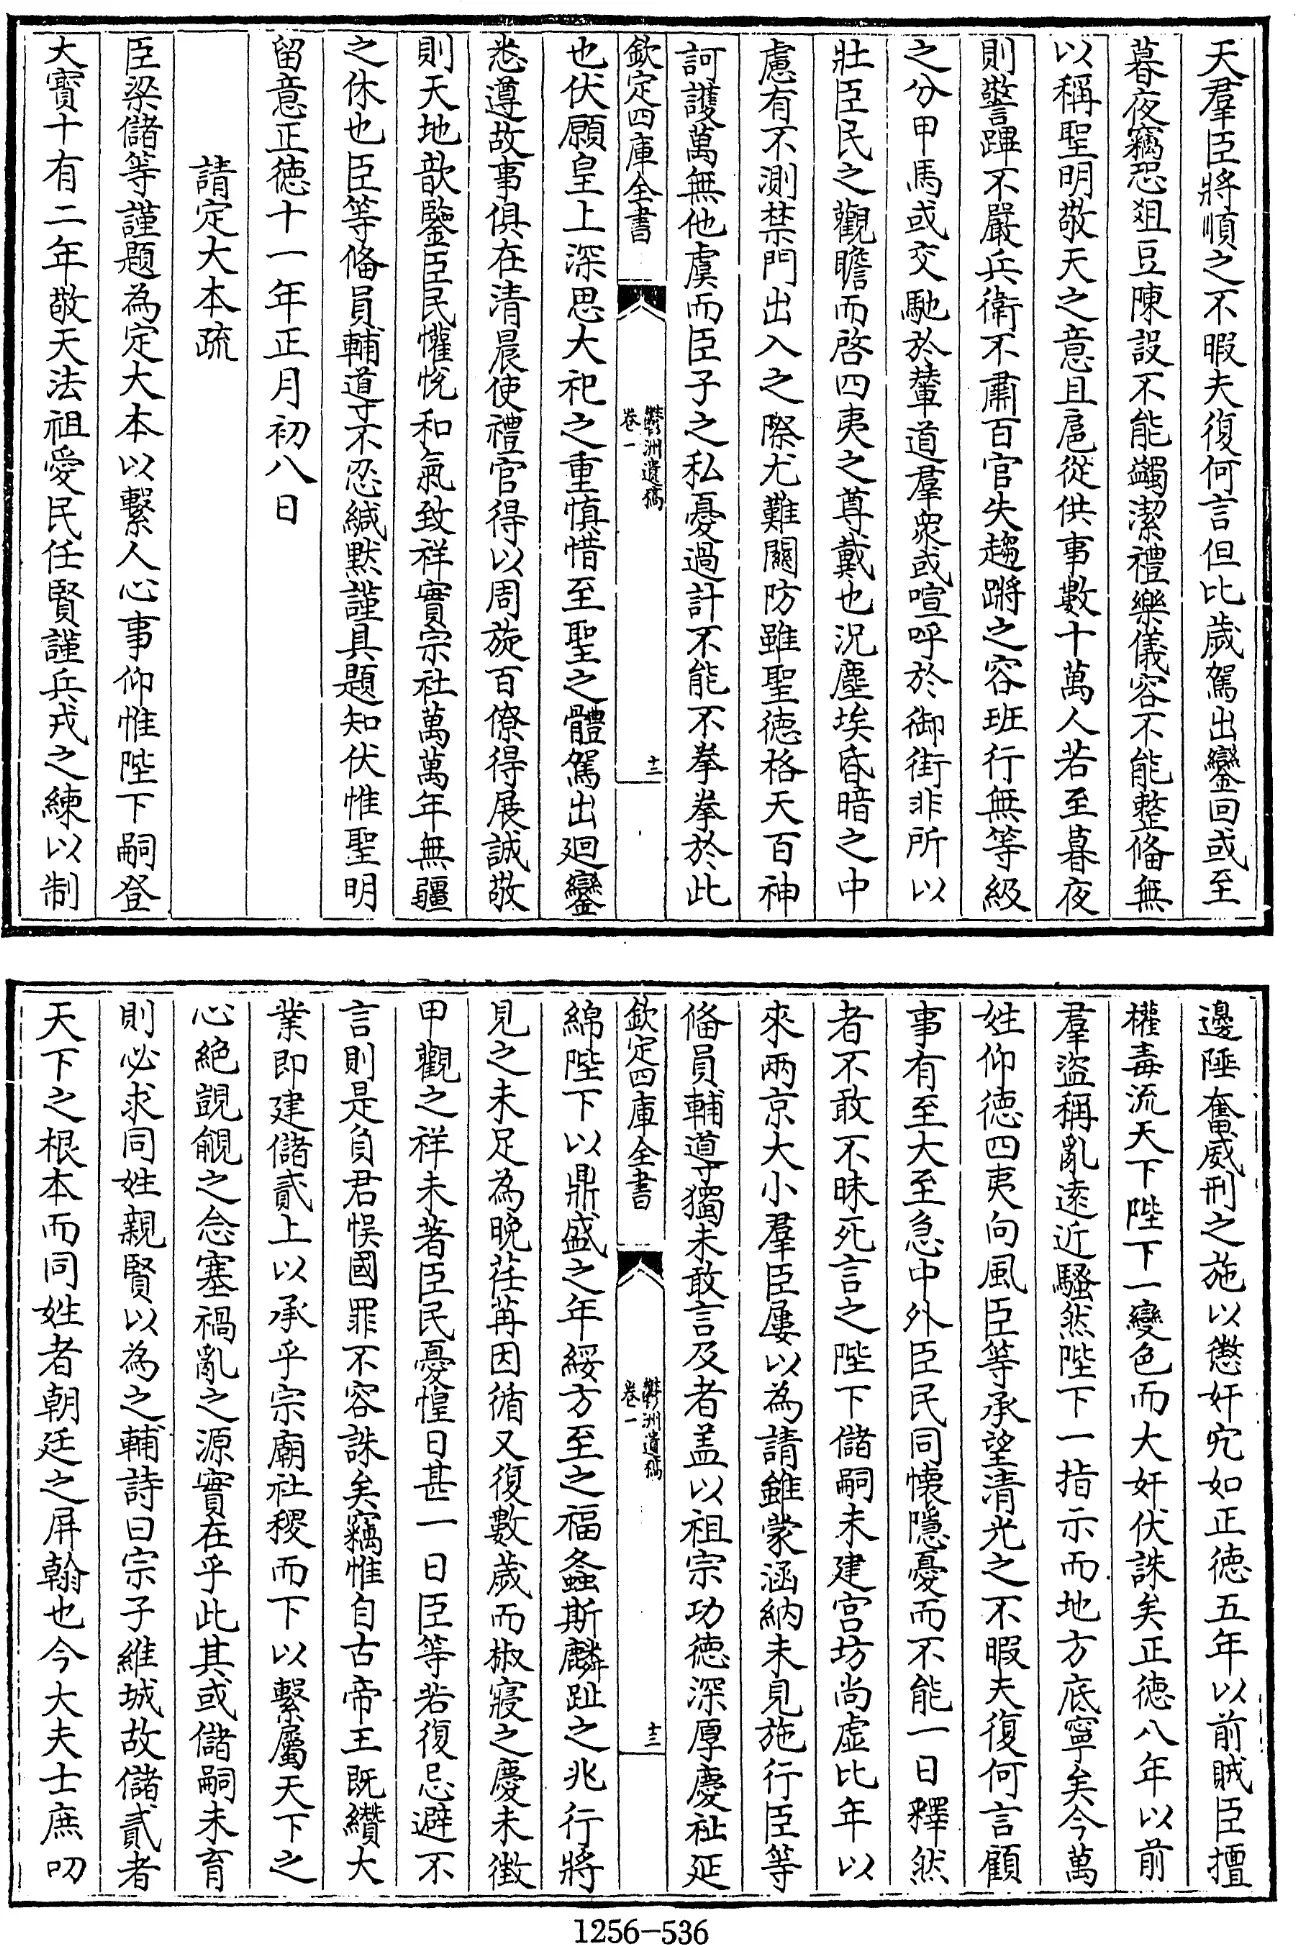 天羣臣將順之不暇夫復何言但比歲駕出鑾回或至
暮夜竊恐俎豆陳設不能蠲潔禮樂儀容不能整偹無
以稱聖明敬天之意且扈從供事數十萬人若至暮夜
則警蹕不嚴兵衛不肅百官失趨蹌之容班行無等級
之分甲馬或交馳於輦道羣衆或喧呼於御街非所以
壯臣民之觀瞻而啓四夷之尊戴也況塵埃昏暗之中
慮有不測禁門出入之際尤難關防雖聖徳格天百神
訶護萬無他虞而臣子之私憂過計不能不拳拳於此
欽定四庫全書
鬱洲遺稿
卷一
十二
也伏願皇上深思大祀之重慎惜至聖之體駕出廻鑾
悉遵故事俱在清晨使禮官得以周旋百僚得展誠敬
則天地歆鑒臣民懽恱和氣致祥實宗社萬萬年無疆
之休也臣等偹員輔導不忍緘默謹具題知伏惟聖明
留意正徳十一年正月初八日
請定大本疏
臣梁儲等謹題為定大本以繫人心事仰惟陛下嗣登
大寳十有二年敬天法祖愛民任賢謹兵戎之練以制
邊陲奮威刑之施以懲奸宄如正徳五年以前賊臣擅
權毒流天下陛下一變色而大奸伏誅矣正徳八年以前
羣盜稱亂逺近騷然陛下一指示而地方底寧矣今萬
姓仰徳四夷向風臣等承望清光之不暇夫復何言顧
事有至大至急中外臣民同懐隱憂而不能一日釋然
者不敢不昧死言之陛下儲嗣未建宫坊尚虚比年以
來兩京大小羣臣屢以為請雖蒙涵納未見施行臣等
偹員輔導獨未敢言及者盖以祖宗功徳深厚慶祉延
欽定四庫全書
鬱洲遺稿
卷一
十三
綿陛下以鼎盛之年綏方至之福螽斯麟趾之兆行將
見之未足為晩荏苒因循又復數歲而椒寢之慶未徴
甲觀之祥未著臣民憂惶日甚一日臣等若復忌避不
言則是負君悮國罪不容誅矣竊惟自古帝王既纉大
業即建儲貳上以承乎宗廟社稷而下以繫屬天下之
心絶覬覦之念塞禍亂之源實在乎此其或儲嗣未育
則必求同姓親賢以為之輔詩曰宗子維城故儲貳者
天下之根本而同姓者朝廷之屏翰也今大夫士庶叨
1256-536